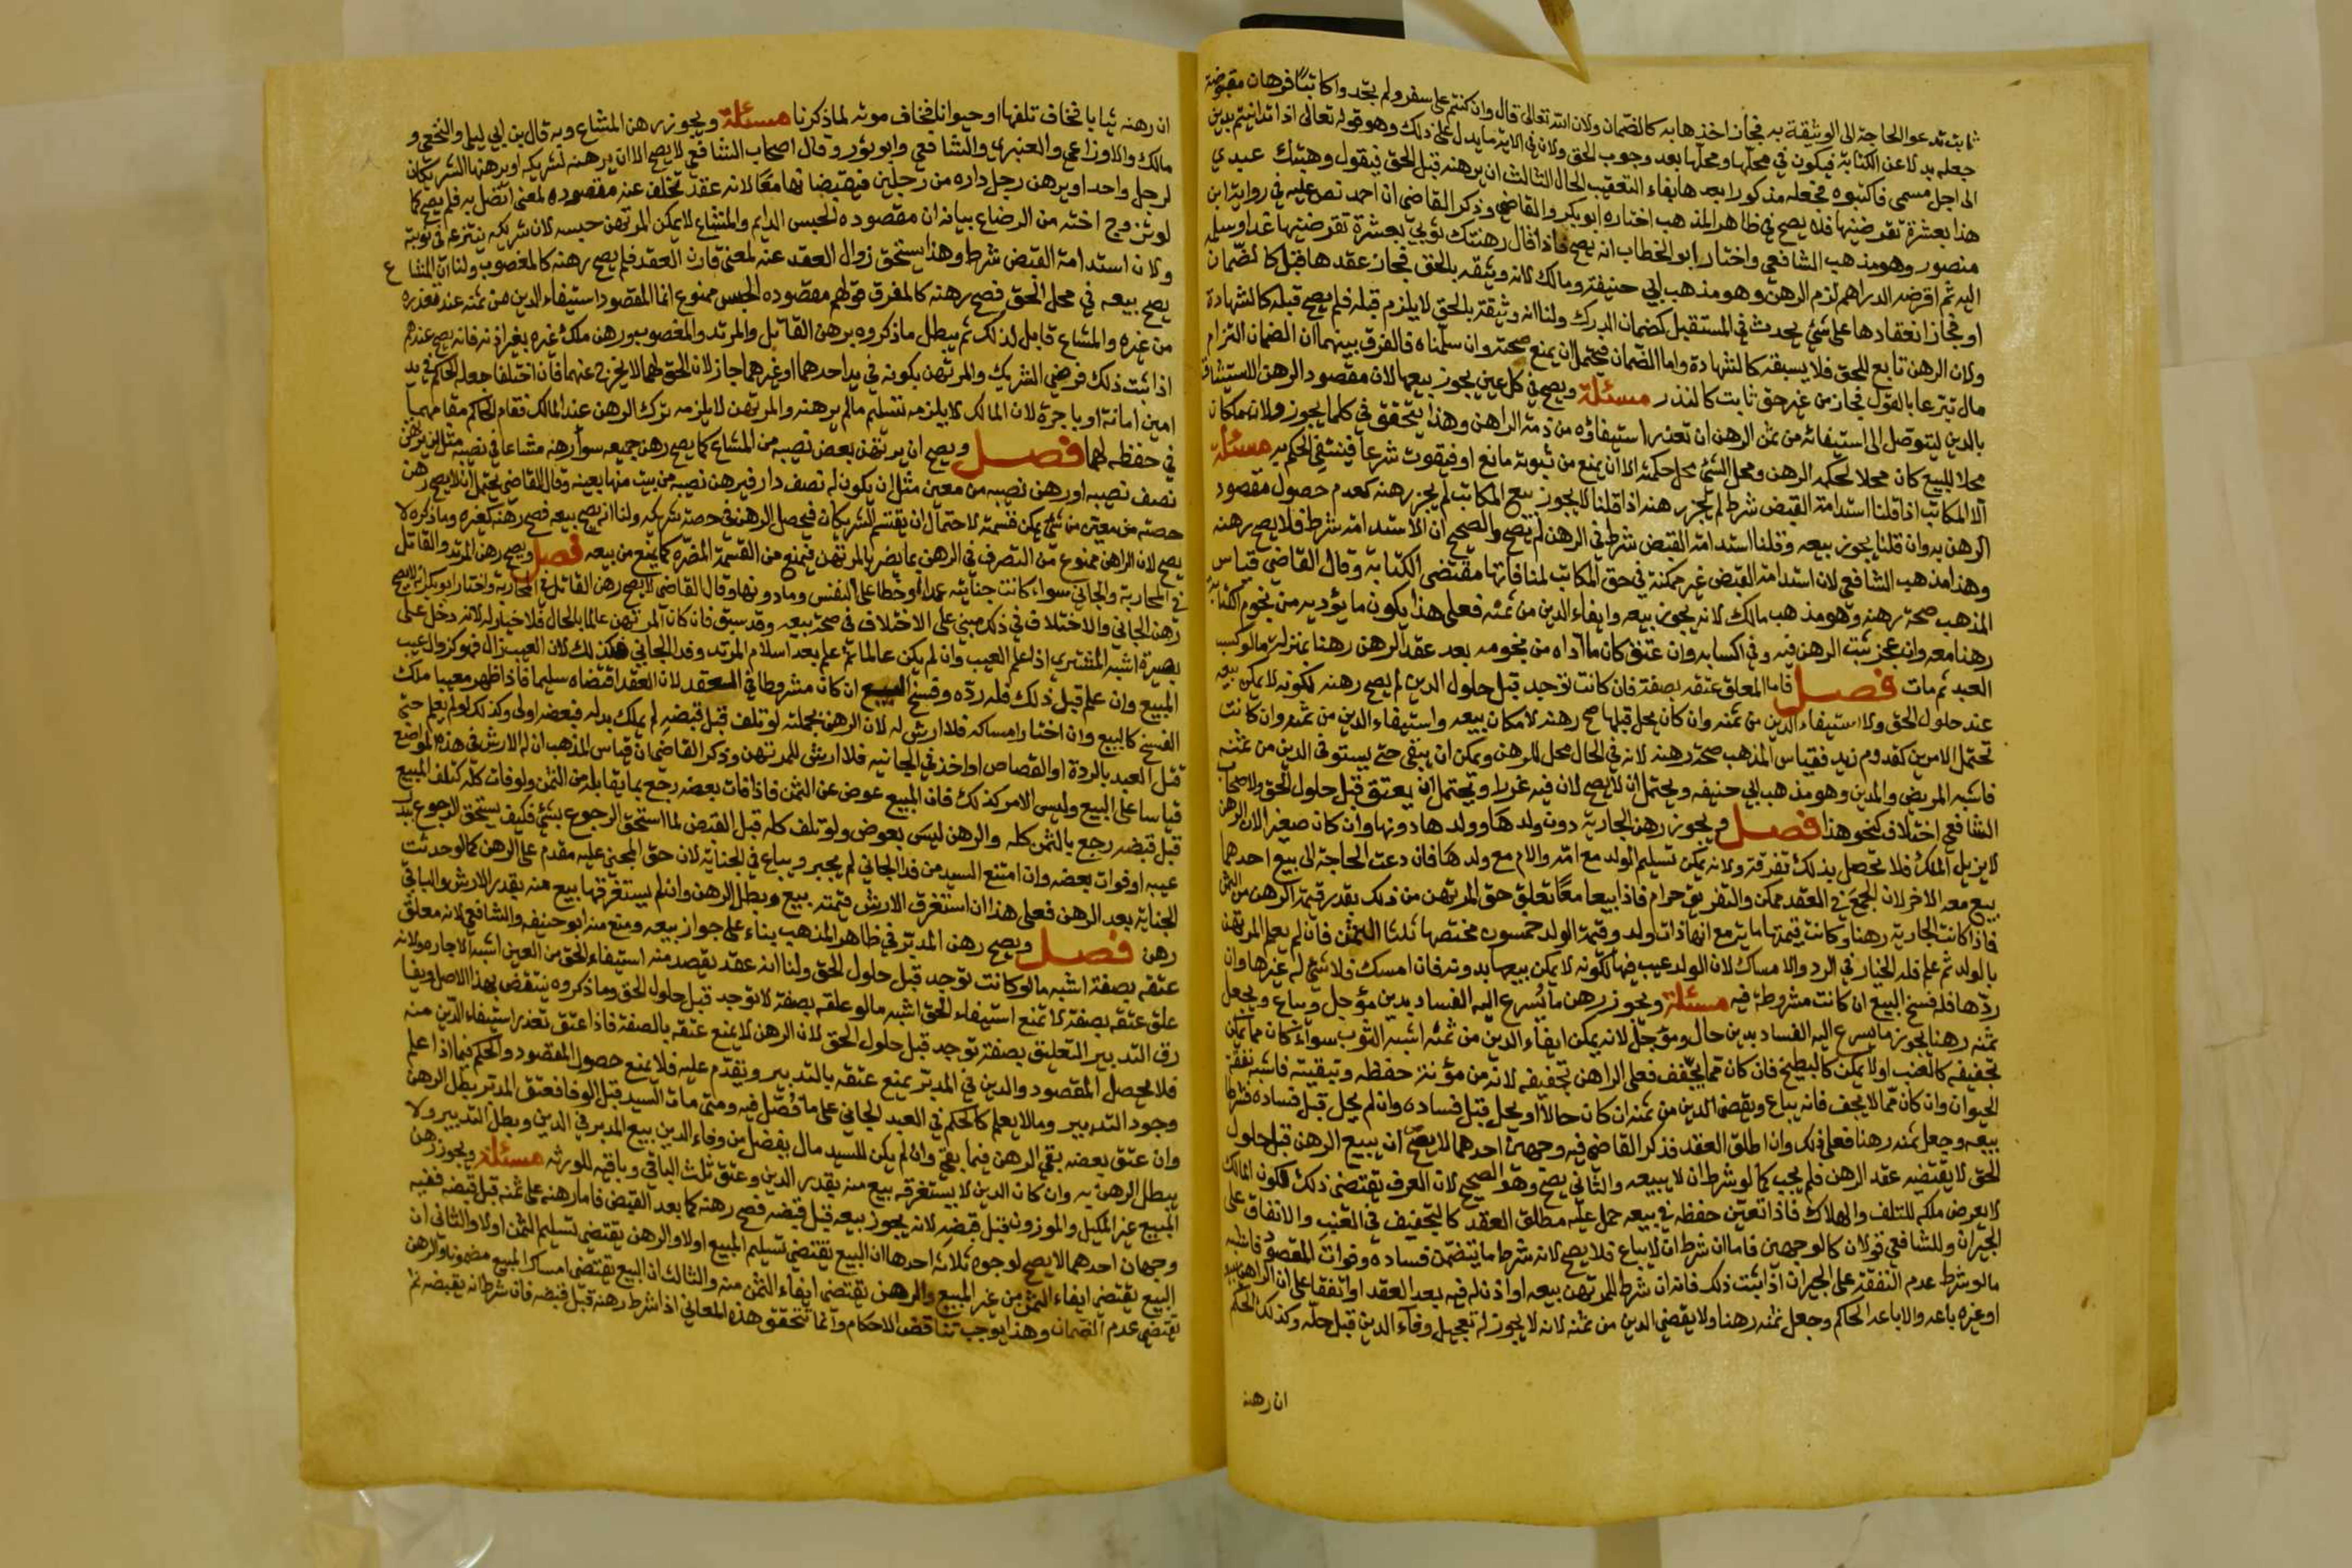 ثابت تدعو الحاجة الى الوثيقة به فجاز اخذها به كالضمان ولان الله تعالى قال وان كنتم على سفر ولم تجدوا كاتبا فرهان مقبوضة
جعله بدلا عن الكتابة فيكون في محلها ومحلها بعد وجوب الحق ولان في الاية ما يدل على ذلك وهو قوله تعالى اذا تداينتم بدين
الى اجل مسمى فاكتبوه فجعله مذكورا بعدها بفاء التعقيب الحال الثالث ان يرهنه قبل الحق فيقول رهنتك عبدي
هذا بعشرة تقرضنيها فلا يصح في ظاهر المذهب اختاره ابو بكر والقاضي وذكر القاضي ان احمد نص عليه في رواية ابن
منصور وهو مذهب الشافعي واختار ابو الخطاب انه يصح فاذا قال رهنتك ثوبي بعشرة تقرضنيها غدا وسلمه
اليه ثم اقرضه الدراهم لزم الرهن وهو مذهب ابي حنيفة ومالك لانه وثيقه بالحق فجاز عقدها قبل كالضمان
او فجاز انعقادها على شيء يحدث في المستقبل كضمان الدرك ولنا انه وثيقة بالحق لا يلزم قبله فلم يصح قبله كالشهادة
ولان الرهن تابع للحق فلا يسبقه كالشهادة واما الضمان فيحتمل ان يمنع صحته وان سلمناه فالفرق بينهما ان الضمان التزام
مال تبرعا بالقول فجاز من غير حق ثابت كالنذر مسئلة ويصح في كل عين يجوز بيعها لان مقصود الرهن الاستيثاق
بالدين ليتوصل الى استيفائه من ثمن الرهن ان تعذر استيفاؤه من ذمة الراهن وهذا يتحقق في كلما يجوز ولانه مكان
محلا للبيع كان محلا لحكمة الرهن ومحل الشيء محل حكمته الا ان يمنع من ثبوته مانع او فيقوت شرعا فينتفي الحكم به مسئلة
الا المكاتب اذا قلنا استدامة القبض شرط لم يجز رهنه اذا قلنا لا يجوز بيع المكاتب لم يجز رهنه كعدم حصول مقصود
الرهن به وان قلنا يجوز بيعه وقلنا استدامة القبض شرط في الرهن لم يصح والصحيح ان الاستدامة شرط فلا يصح رهنه
وهذا مذهب الشافعي لان استدامة القبض غير ممكنة في حق المكاتب لمنافاتها مقتضى الكتابة وقال القاضي قياس
المذهب صحة رهنه وهو مذهب مالك لانه يجوز بيعه وايفاء الدين من ثمنه فعلى هذا يكون ما يؤديه من نجوم كتابته
رهنا معه وان عجز ثبت الرهن فيه وفي اكسابه وان عتق كان ما اداه من نجومه بعد عقد الرهن رهنا بمنزلة مالو كسب
العبد ثم مات فصل فاما المعلق عتقه بصفة فان كانت توجد قبل حلول الدين لم يصح رهنه لكونه لا يمكن بيعه
عند حلول الحق ولا استيفاء الدين من ثمنه وان كان يحل قبلها صح رهنه لامكان بيعه واستيفاء الدين من ثمنه وان كانت
تحتمل الامرين كقدوم زيد فقياس المذهب صحة رهنه لانه في الحال محل للرهن ويمكن ان يبقى حتى يستوفى الدين من ثمنه
فاشبه المريض والمدبر وهو مذهب ابي حنيفه ويحتمل ان لا يصح لان فيه غررا ويحتمل ان يعتق قبل حلول الحق ولاصحاب
الشافعي اختلاف كنحو هذا فصل ويجوز رهن الجارية دون ولدها وولدها دونها وان كان صغيرا لان الرهن
لا يزيل الملك فلا يحصل بذلك تفرقة ولانه يمكن تسليم الولد مع امه والام مع ولدها فان دعت الحاجة الى بيع احدهما
بيع معه الاخر لان الجمع في العقد ممكن والتفريق حرام فاذا بيعا معا تعلق حق المرتهن من ذلك بقدر قيمة الرهن من الثمن
فاذا كانت الجارية رهنا وكانت قيمتها ماية مع انها ذات ولد وقيمة الولد خمسون فحصتها ثلثا الثمن فان لم يعلم المرتهن
بالولد ثم علم فله الخيار في الرد والامساك لان الولد عيب فيها لكونه لا يمكن بيعها بدونه فان امسك فلا شيء له غيرها وان
ردها فله فسخ البيع ان كانت مشروطة فيه مسئلة ويجوز رهن ما يسرع اليه الفساد بدين مؤجل ويباع ويجعل
ثمنه رهنا يجوز رهن ما يسرع اليه الفساد بدين حال ومؤجل لانه يمكن ايفاء الدين من ثمنه اشبه الثوب سواء كان مما يمكن
تجفيفه كالعنب او لا يمكن كالبطيخ فان كان مما يجفف فعلى الراهن تجفيفه لانه من مؤنة حفظه وتبقيته فاشبه نفقة
الحيوان وان كان مما لا يجف فانه يباع ويقضى الدين من ثمنه ان كان حالا او يحل قبل فساده وان لم يحل قبل فساده فشرط
بيعه وجعل ثمنه رهنا فعلى ذلك وان اطلق العقد فذكر القاضي فيه وجهين احدهما لا يصح ان يبيع الرهن قبل حلول
الحق لا يقتضيه عقد الرهن فلم يجب كما لو شرط ان لا يبيعه والثاني يصح وهو الصحيح لان العرف يقتضي ذلك لكون المالك
لا يعرض ملكه للتلف والهلاك فاذا تعين حفظه في بيعه حمل عليه مطلق العقد كالتجفيف في العنب والانفاق على
الحيوان وللشافعي قولان كالوجهين فاما ان شرط ان لا يباع فلا يصح لانه شرط ما يتضمن فساده وفوات المقصود فاشبه
مالو شرط عدم النفقة على الحيوان اذا ثبت ذلك فانه ان شرط للمرتهن بيعه او اذن له فيه بعد العقد او اتفقا على ان الراهن يبيعه
او غيره باعه والا باعه الحاكم وجعل ثمنه رهنا ولا يقضي الدين من ثمنه لانه لا يجوز له تعجيل وفاء الدين قبل حله وكذلك الحكم
ان رهنه
ان رهنه ثيابا فخاف تلفها او حيوانا فخاف موته لما ذكرنا مسئلة ويجوز رهن المشاع وبه قال بن ابي ليلى والنخعي و
مالك والاوزاعي والعنبري والشافعي وابو ثور وقال اصحاب الشافعي لا يصح الا ان يرهنه لشريكه او يرهنها الشريكان
لرجل واحد او يرهن رجل داره من رجلين فيقبضانها معا لانه عقد تخلف عنه مقصوده لمعنى اتصل به فلم يصح كما
لو تزوج اخته من الرضاع بيانه ان مقصوده الحبس الدايم والمشاع لا يمكن المرتهن حبسه لان شريكه ينتزعه في نوبته
ولان استدامة القبض شرط وهذا يستحق زوال العقد عنه لمعنى قارن العقد فلم يصح رهنه كالمغصوب ولنا ان المشاع
يصح بيعه في محل الحق فصح رهنه كالمفرق قولهم مقصوده الحبس ممنوع انما المقصود استيفاء الدين من ثمنه عند تعذره
من غيره والمشاع قابل لذلك ثم يبطل ما ذكروه برهن القاتل والمرتد والمغصوب ورهن ملك غيره بغير اذنه فانه يصح عندهم
اذا ثبت ذلك فرضي الشريك والمرتهن بكونه في يد احدهما او غيرهما جاز لان الحق لهما لا يخرج عنهما فان اختلفا جعله الحاكم في يد
امين امانة او باجرة لان المالك لا يلزمه تسليم مالم يرهنه والمرتهن لا يلزمه ترك الرهن عند المالك فقام الحاكم مقامهما
في حفظه لهما فصل ويصح ان يرتهن بعض نصيبه من المشاع كما يصح رهن جميعه سوا رهنه مشاعا في نصيبه مثل ان يرهن
نصف نصيبه او رهن نصيبه من معين مثل ان يكون له نصف دار فيرهن نصيبه من بيت منها بعينه وقال القاضي يحتمل ان لا يصح رهن
حصته من معين من شيء يمكن قسمته لاحتمال ان يقتسم الشريكان فيحصل الرهن في حصة شريكه ولنا انه يصح بيعه فصح رهنه كغيره وما ذكره لا
يصح لان الراهن ممنوع من التصرف في الرهن بما يضر بالمرتهن فيمنع من القسمة المضره كما يمنع من بيعه فصل ويصح رهن المرتد والقاتل
في المحاربة والجاني سواء كانت جنايته عمدا او خطا على النفس وما دونها وقال القاضي لا يصح رهن القاتل في المحاربة واختار ابو بكر انه لا يصح
رهن الجاني والاختلاف في ذلك مبني على الاختلاف في صحة بيعه وقد سبق فان كان المرتهن عالما بالحال فلا خيار له لانه دخل على
بصيرة اشبه المشتري اذا علم العيب وان لم يكن عالما ثم علم بعد اسلام المرتد وفدا الجاني فكذلك لان العيب زال فهو كزوال عيب
المبيع وان علم قبل ذلك فله رده وفسخ البيع ان كان مشروطا في العقد لان العقد اقتضاه سليما فاذا ظهر معيبا ملك
الفسخ كالبيع وان اختار امساكه فلا ارش له لان الرهن بجملته لو تلف قبل قبضه لم يملك بدله فبعضه اولى وكذلك لو لم يعلم حتى
قتل العبد بالردة او القصاص او اخذ في الجانيه فلا ارش للمرتهن وذكر القاضي ان قياس المذهب ان له الارش في هذه المواضع
قياسا على البيع وليس الامر كذلك فان المبيع عوض عن الثمن فاذا فات بعضه رجع بما يقابله من الثمن ولو فات كله كتلف المبيع
قبل قبضه رجع بالثمن كله والرهن ليس بعوض ولو تلف كله قبل القبض لما استحق الرجوع بشيء فكيف يستحق الرجوع ببدل
عيبه او فوات بعضه وان امتنع السيد من فدا الجاني لم يجبر ويباع في الجناية لان حق المجني عليه مقدم على الرهن كما لو حدثت
الجناية بعد الرهن فعلى هذا ان استغرق الارش قيمته بيع وبطل الرهن وان لم يستغرقها بيع منه بقدر الارش والباقي
رهن فصل ويصح رهن المدبر في ظاهر المذهب بناء على جواز بيعه ومنع منه ابو حنيفه والشافعي لانه معلق
عتقه بصفة اشبه مالو كانت توجد قبل حلول الحق ولنا انه عقد يقصد منه استيفاء الحق من العين اشبه الاجاره ولانه
علق عتقه بصفة لا تمنع استيفاء الحق اشبه مالو علقه بصفة لا توجد قبل حلول الحق وما ذكروه ينتقض بهذا الاصل ويفا
رق التدبير التعليق بصفة توجد قبل حلول الحق لان الرهن لا يمنع عتقه بالصفة فاذا عتق تعذر استيفاء الدين منه
فلا يحصل المقصود والدين في المدبر يمنع عتقه بالتدبير ويقدم عليه فلا يمنع حصول المقصود والحكم فيما اذا علم
وجود التدبير وما لا يعلم كالحكم في العبد الجاني على ما فصل فيه ومتى مات السيد قبل الوفا فعتق المدبر بطل الرهن
وان عتق بعضه بقي الرهن فيما بقي وان لم يكن للسيد مال يفضل من وفاء الدين بيع المدبر في الدين وبطل التدبير ولا
يبطل الرهن به وان كان الدين لا يستغرقه بيع منه بقدر الدين وعتق ثلث الباقي وباقيه للورثه مسئلة ويجوز رهن
المبيع غير المكيل والموزون قبل قبضه لانه يجوز بيعه قبل قبضه فصح رهنه كما بعد القبض فاما رهنه على ثمنه قبل قبضه ففيه
وجهان احدهما لا يصح لوجوه ثلاثه احدها ان البيع يقتضي تسليم المبيع اولا والرهن يقتضي تسليم الثمن اولا والثاني ان
البيع يقتضي ايفاء الثمن من غير المبيع والرهن يقتضي ايفاء الثمن منه والثالث ان البيع يقتضي امساك المبيع مضمونا والرهن
يقتضي عدم الضمان وهذا يوجب تناقض الاحكام وانما تتحقق هذه المعاني اذا شرط رهنه قبل قبضه فان شرط انه يقبضه ثم